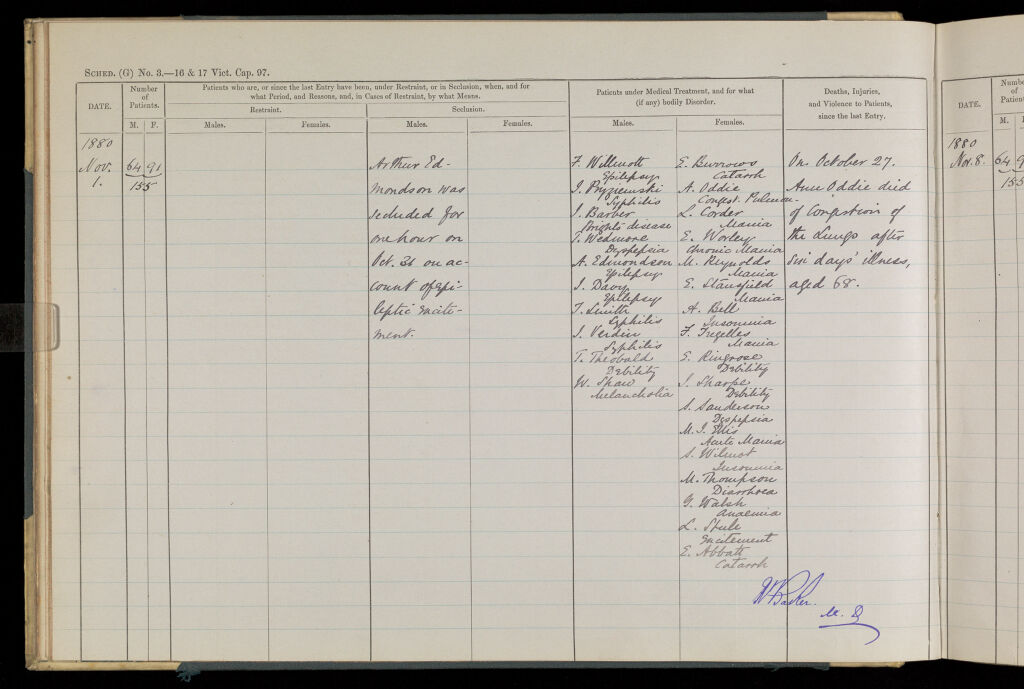 SCHED. (G) No. 3.—16 & 17 Vict. Cap. 97.
DATE.
Number
of
Patients.
M. F.
Patients who are, or since the last Entry have been, under Restraint, or in Seclusion, when, and for
what Period, and Reasons, and, in Cases of Restraint, by what Means.
Restraint.
Seclusion.
Males.
Females.
Males.
Females.
Patients under Medical Treatment, and for what
(if any) bodily Disorder.
Males.
Females.
Deaths, Injuries,
and Violence to Patients,
since the last Entry.
1880
Nov.
1.
64 91
155
Arthur Ed-
mondson was
secluded for
one hour on
Oct. 26 on ac-
count of epi-
leptic excite-
ment.
F. Willmott
Epilepsy
I. Pryziemski
Syphilis
J. Barber
Brights disease
T. Wedmore
Dyspepsia
A. Edmondson
Epilepsy
J. Davy
Epilepsy
T. Smith
Syphilis
J. Verdin
Syphilis
T. Theobald
Debility
W. Shaw
Melancholia
E. Burrows
Catarrh
A. Oddie
Congest. Pulmon.
L. Corder
Mania
E. Worley
Chronic Mania
M. Reynolds
Mania
E. Stansfield
Mania
A. Bell
Insomnia
F. Fregelles
Mania
E. Ringrose
Debility
J. Sharpe
Debility
S. Sanderson
Dyspepsia
M. J. Ellis
Acute Mania
S. Wilmot
Insomnia
M. Thompson
Diarrhoea
G. Walsh
Anaemia
L.
Excitement
E. Abbatt
Catarrh
On October 27.
Ann Oddie died
of Congestion of
the Lungs after
six days' illness,
aged 68.
W Baker.
M. D
DATE.
Numb
of
Patient
M.
1880
Nov. 8.
64 9
155